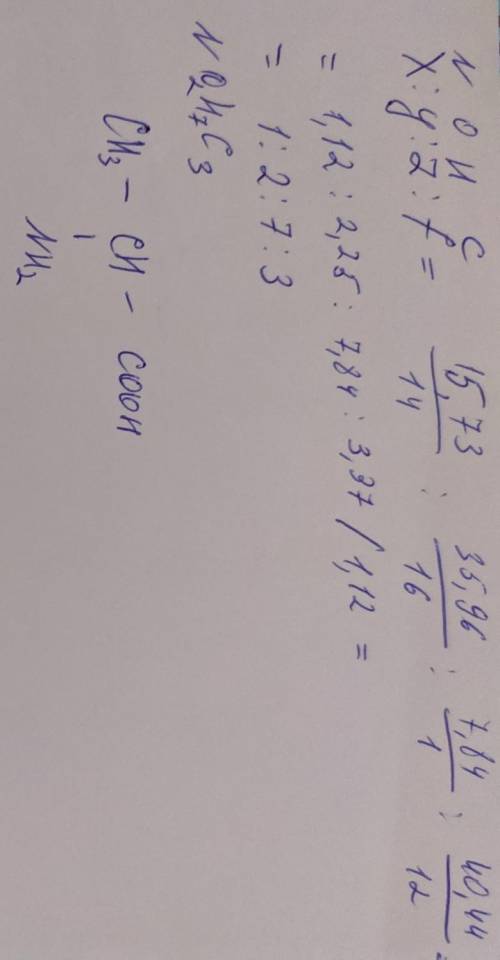 N O H C
x : y : z : f = 15,73/14 : 35,96/16 : 7,84/1 : 40,44/12 =
= 1,12 : 2,25 : 7,84 : 3,37 / 1,12 =
= 1 : 2 : 7 : 3
NO2H7C3
CH3 – CH – COOH
|
NH2